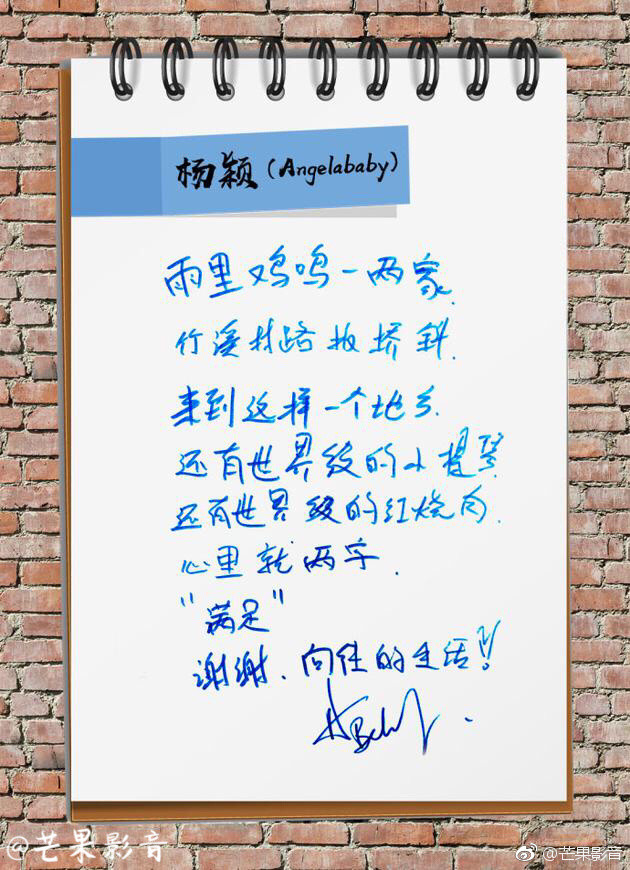 杨颖(Angelababy)
雨里鸡鸣一两家.
竹溪村路板桥斜.
来到这样一个地方.
还有世界级的小提琴
还有世界级的红烧肉.
心里就两字.
"满足"
谢谢、向往的生活!!
@芒果影音
@芒果影音